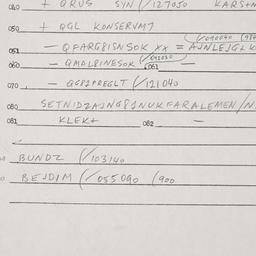 040 + QRUS SYN (/127050 KARS+N
050 + QGL KONSERVM7
051 - QFARG8ISNSOK XX = AJNLEJGLK
060 - QMDL8INESOK 061 -
070 - QG82PREGLT (/121040
080 SETNIDZAJNG8JNUKFARALEMEN/N
081 KLEK+ 082 -
BUNDZ (/103140
BEJDIM (/055090 (900